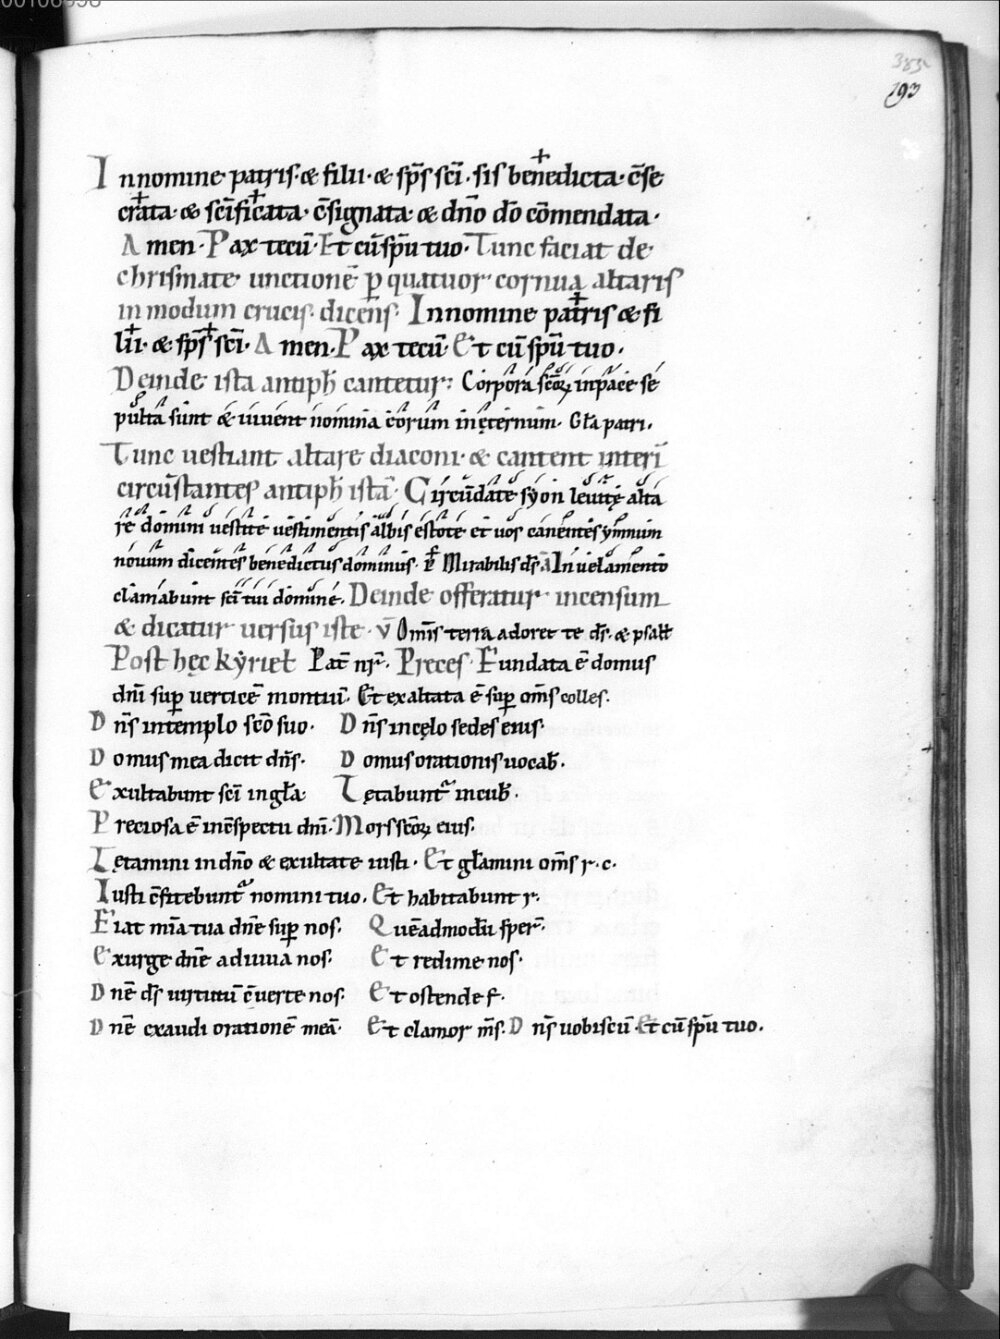 383
193
In nomine patris· & filii· & sp̄s sc̄i· sis benedicta· c̄se
crata· & sc̄ificata· c̄signata· & dn̄o dō cōmendata·
Amen· Pax tecū· Et cū sp̄u tuo· Tunc faciat de
chrismate unctionē p̱ quatuor cornua altaris
in modum crucis· dicens̄· In nomine patris & fi
lii· & sp̄s sc̄i· Amen· Pax tecū· Et cū sp̄u tuo·
Deinde ista antiph̄ cantetur: Corpora scōꝝ in pace se
pulta sunt & uiuent nomina eorum in ęternum· Gła patri·
Tunc uestiant altare diaconi· & cantent interī
circūstantes antiph̄ istā· Circūdate syon leuitę alta
re domini uestite uestimentis albis estote et uos canentes ymnum
nouum dicentes benedictus dominus· Mirabilis ds̄ In uelamento
clamabunt sctī tui domine· Deinde offeratur incensum
& dicatur uersus iste· v̄ Om̄is terra adoret te ds̄· & psałł
Post hęc kyrieł Pat̄ nr̄· Preces· Fundata ē domus
dn̄i sup̱ uerticē montiū· Et exaltata ē sup̱ om̄s colles·
Dn̄s in templo scō suo· Dn̄s in cęlo sedes eius·
Domus mea dicit dn̄s· Domus orationis uocab̄·
Exultabunt sc̄i in gła· Lętabunt᷑ in cub̄·
Preciosa ē in c̄spectu dn̄i· Mors scōꝝ eius·
Lętamini in dn̄o & exultate iusti· Et głamini om̄s r· c·
Iusti c̄fitebunt᷑ nomini tuo· Et habitabunt r·
Fiat mīa tua dn̄e sup̱ nos· Quēadmodū sper̄·
Exurge dn̄e adiuua nos· Et redime nos·
Dn̄e ds̄ uirtutū c̄uerte nos· Et ostende f·
Dn̄e exaudi orationē meā· Et clamor m̄s· Dn̄s uobiscū· Et cū sp̄u tuo·